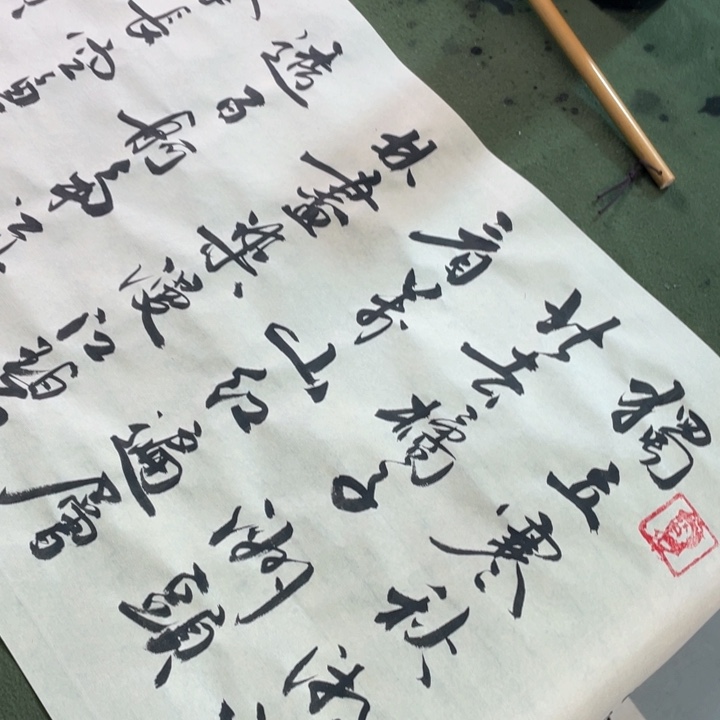 獨立寒秋湘
北去橘子洲頭
看萬山紅遍層
林盡染漫江碧
透百舸爭流
長空魚